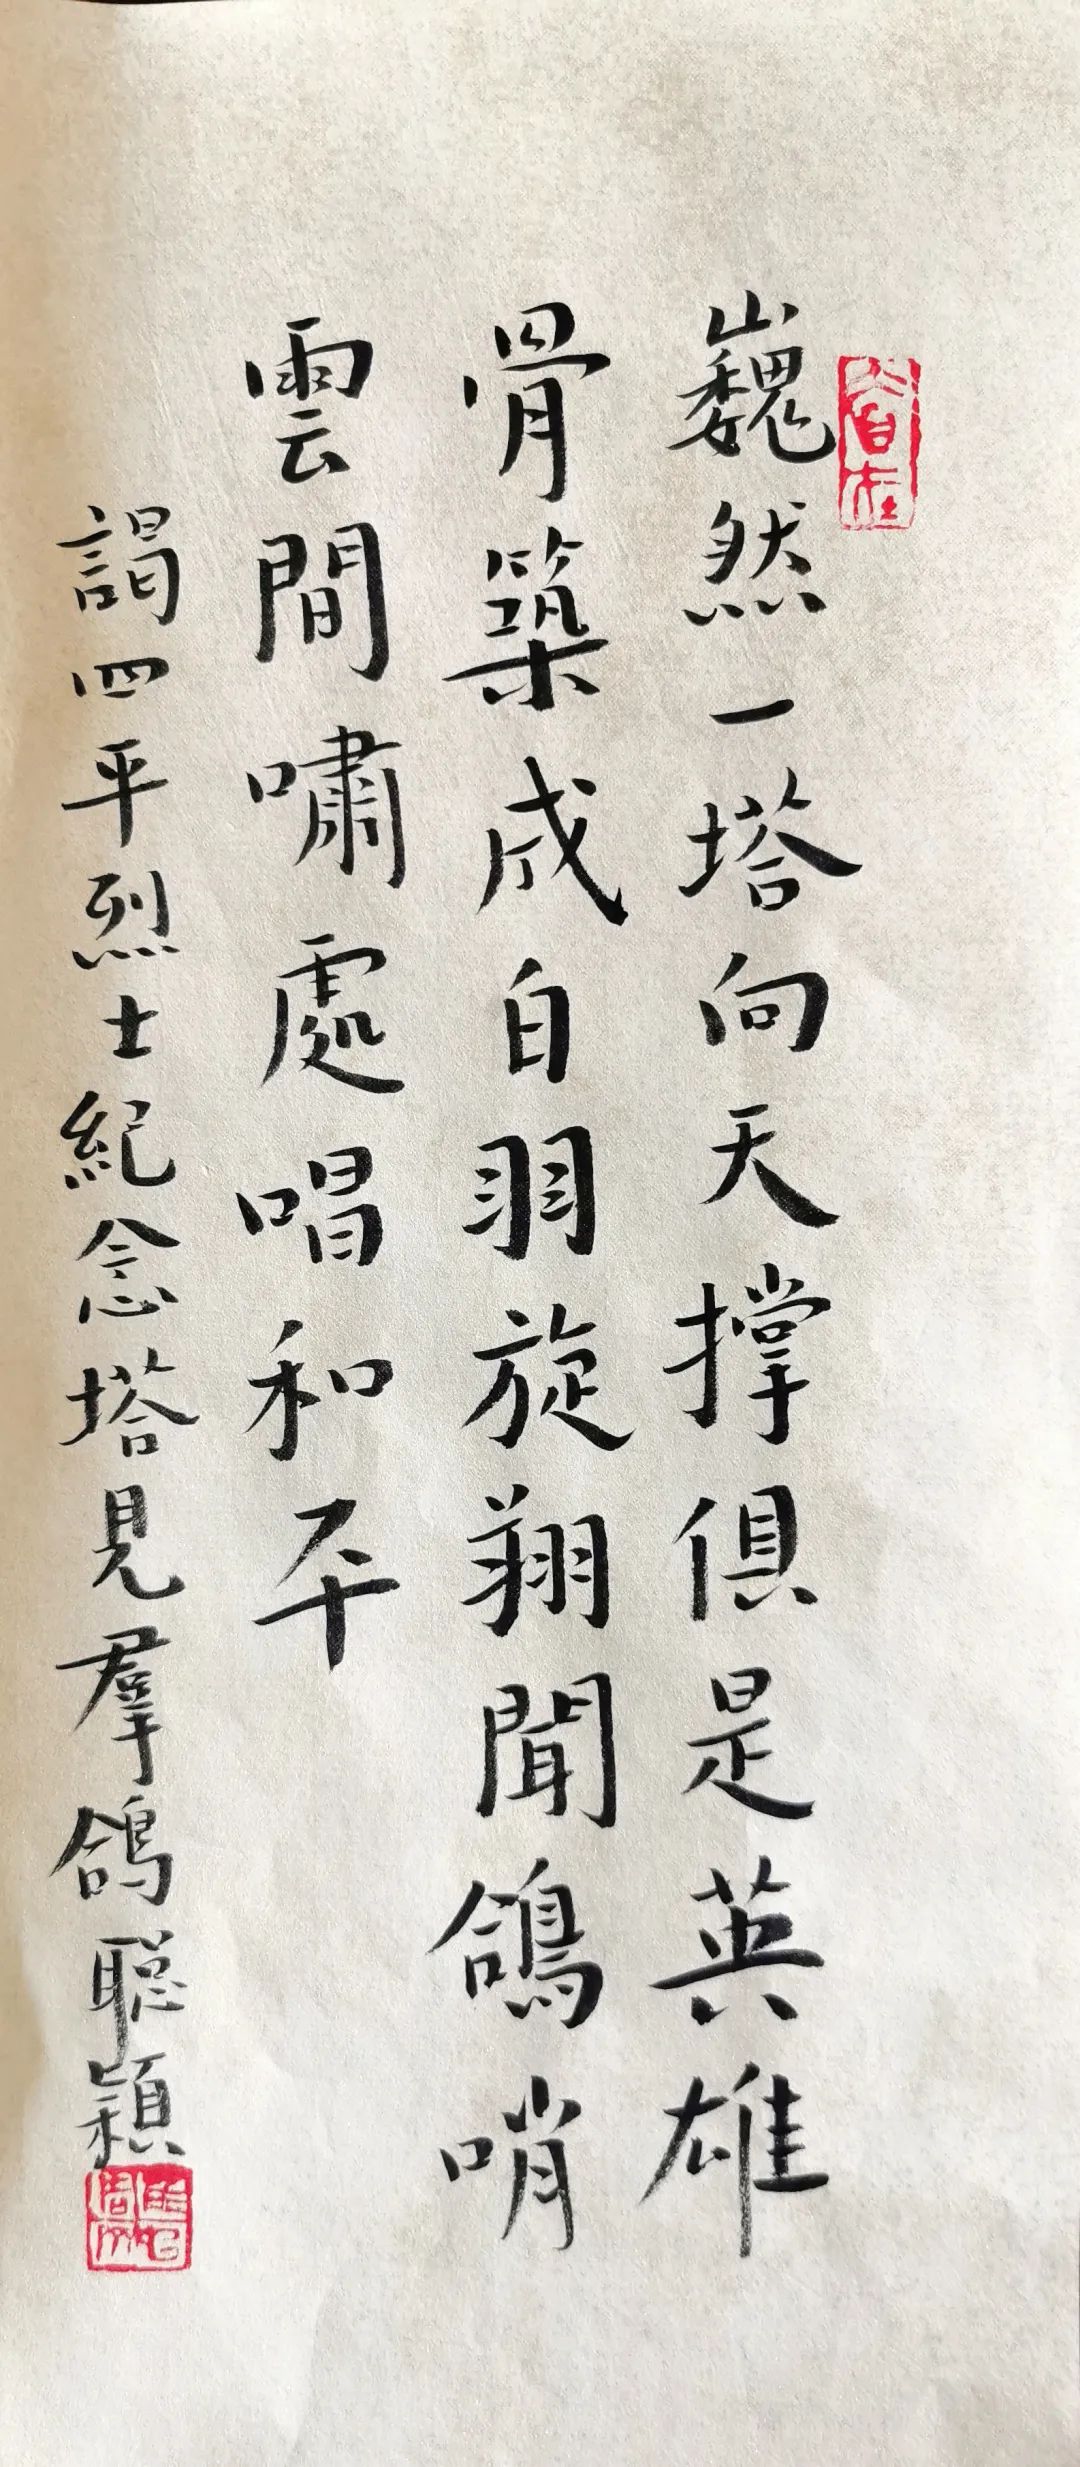 巍然一塔向天撐俱是英雄
骨築成白羽旋翔聞鴿哨
雲間嘯處唱和平
謁四平烈士紀念塔見羣鴿聰穎